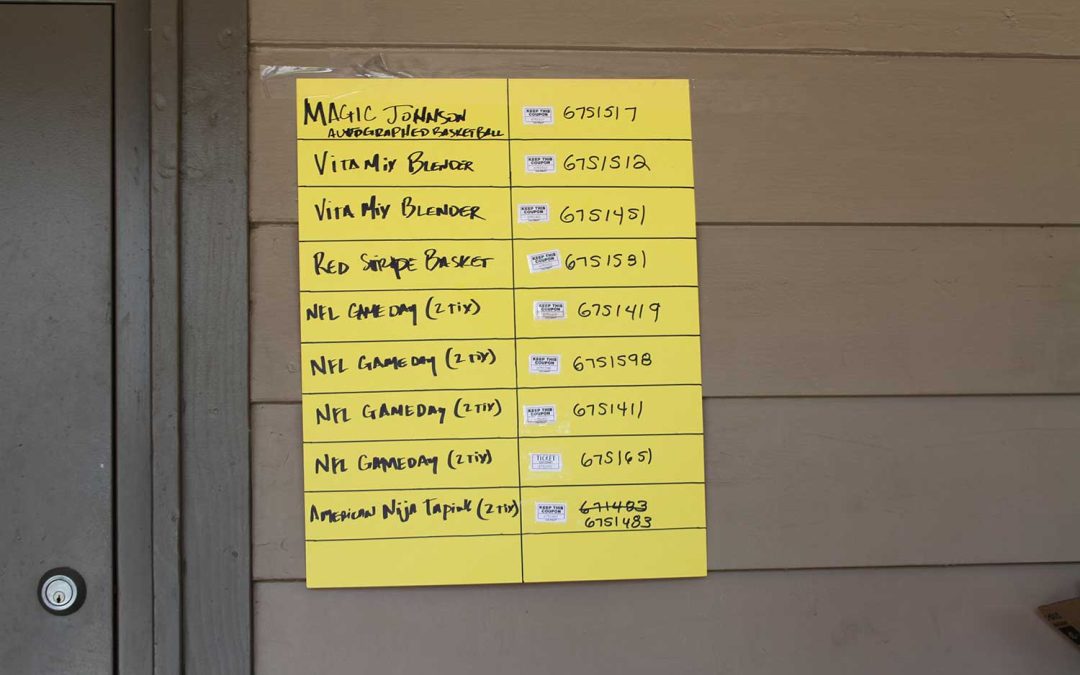 MAGIC JOHNSON
AUTOGRAPHED BASKETBALL
KEEP THIS
COUPON
6751517
VITA MIX BLENDER
KEEP THIS
COUPON
6751512
VITA MIX BLENDER
KEEP THIS
COUPON
6751451
RED STRIPE BASKET
KEEP THIS
COUPON
6751531
NFL GAMEDAY (2 TIX)
KEEP THIS
COUPON
6751419
NFL GAMEDAY (2 TIX)
KEEP THIS
COUPON
6751598
NFL GAMEDAY (2 TIX)
KEEP THIS
COUPON
6751411
NFL GAMEDAY (2 TIX)
TICKET
6751651
AMERICAN NIJA TAPINK (2 TIX)
KEEP THIS
COUPON
671483
6751483